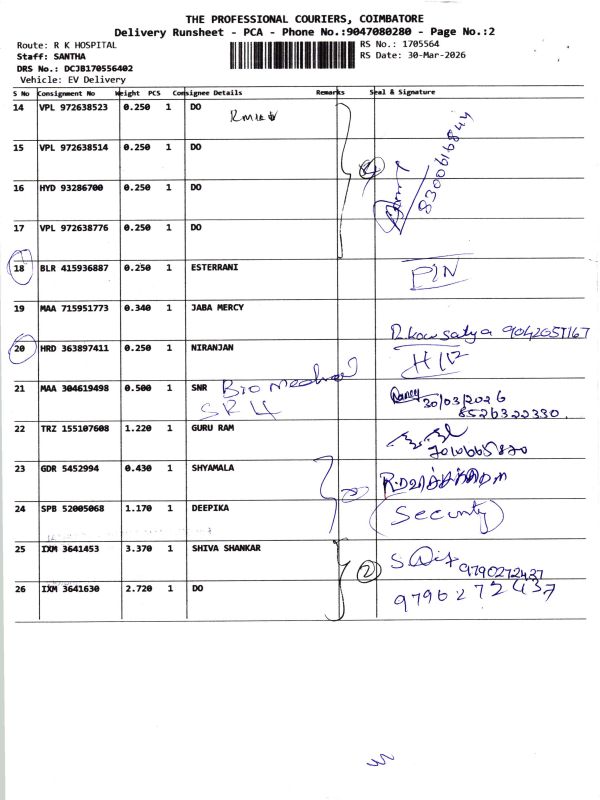 THE PROFESSIONAL COURIERS, COIMBATORE
Delivery Runsheet - PCA - Phone No.:9047080280 - Page No.:2
Route: R K HOSPITAL
RS No.: 1705564
Staff: SANTHA
RS Date: 30-Mar-2026
DRS No.: DCJB170556402
Vehicle: EV Delivery
S No Consignment No Weight PCS Consignee Details Remarks Seal & Signature
14 VPL 972638523 0.250 1 DO
15 VPL 972638514 0.250 1 DO
8300616844
16 HYD 93286700 0.250 1 DO
4
17 VPL 972638776 0.250 1 DO
18 BLR 415936887 0.250 1 ESTERRANI
PIN
19 MAA 715951773 0.340 1 JABA MERCY
R. Kowsatya 9042051167
20 HRD 363897411 0.250 1 NIRANJAN
21 MAA 304619498 0.500 1 SNR Bio Medical
SR 4
30/03/2026
8526322330.
22 TRZ 155107608 1.220 1 GURU RAM
7010665870
23 GDR 5452994 0.430 1 SHYAMALA
24 SPB 52005068 1.170 1 DEEPIKA
Security
25 IXM 3641453 3.370 1 SHIVA SHANKAR
2
9790272437
26 IXM 3641630 2.720 1 DO
9790272437